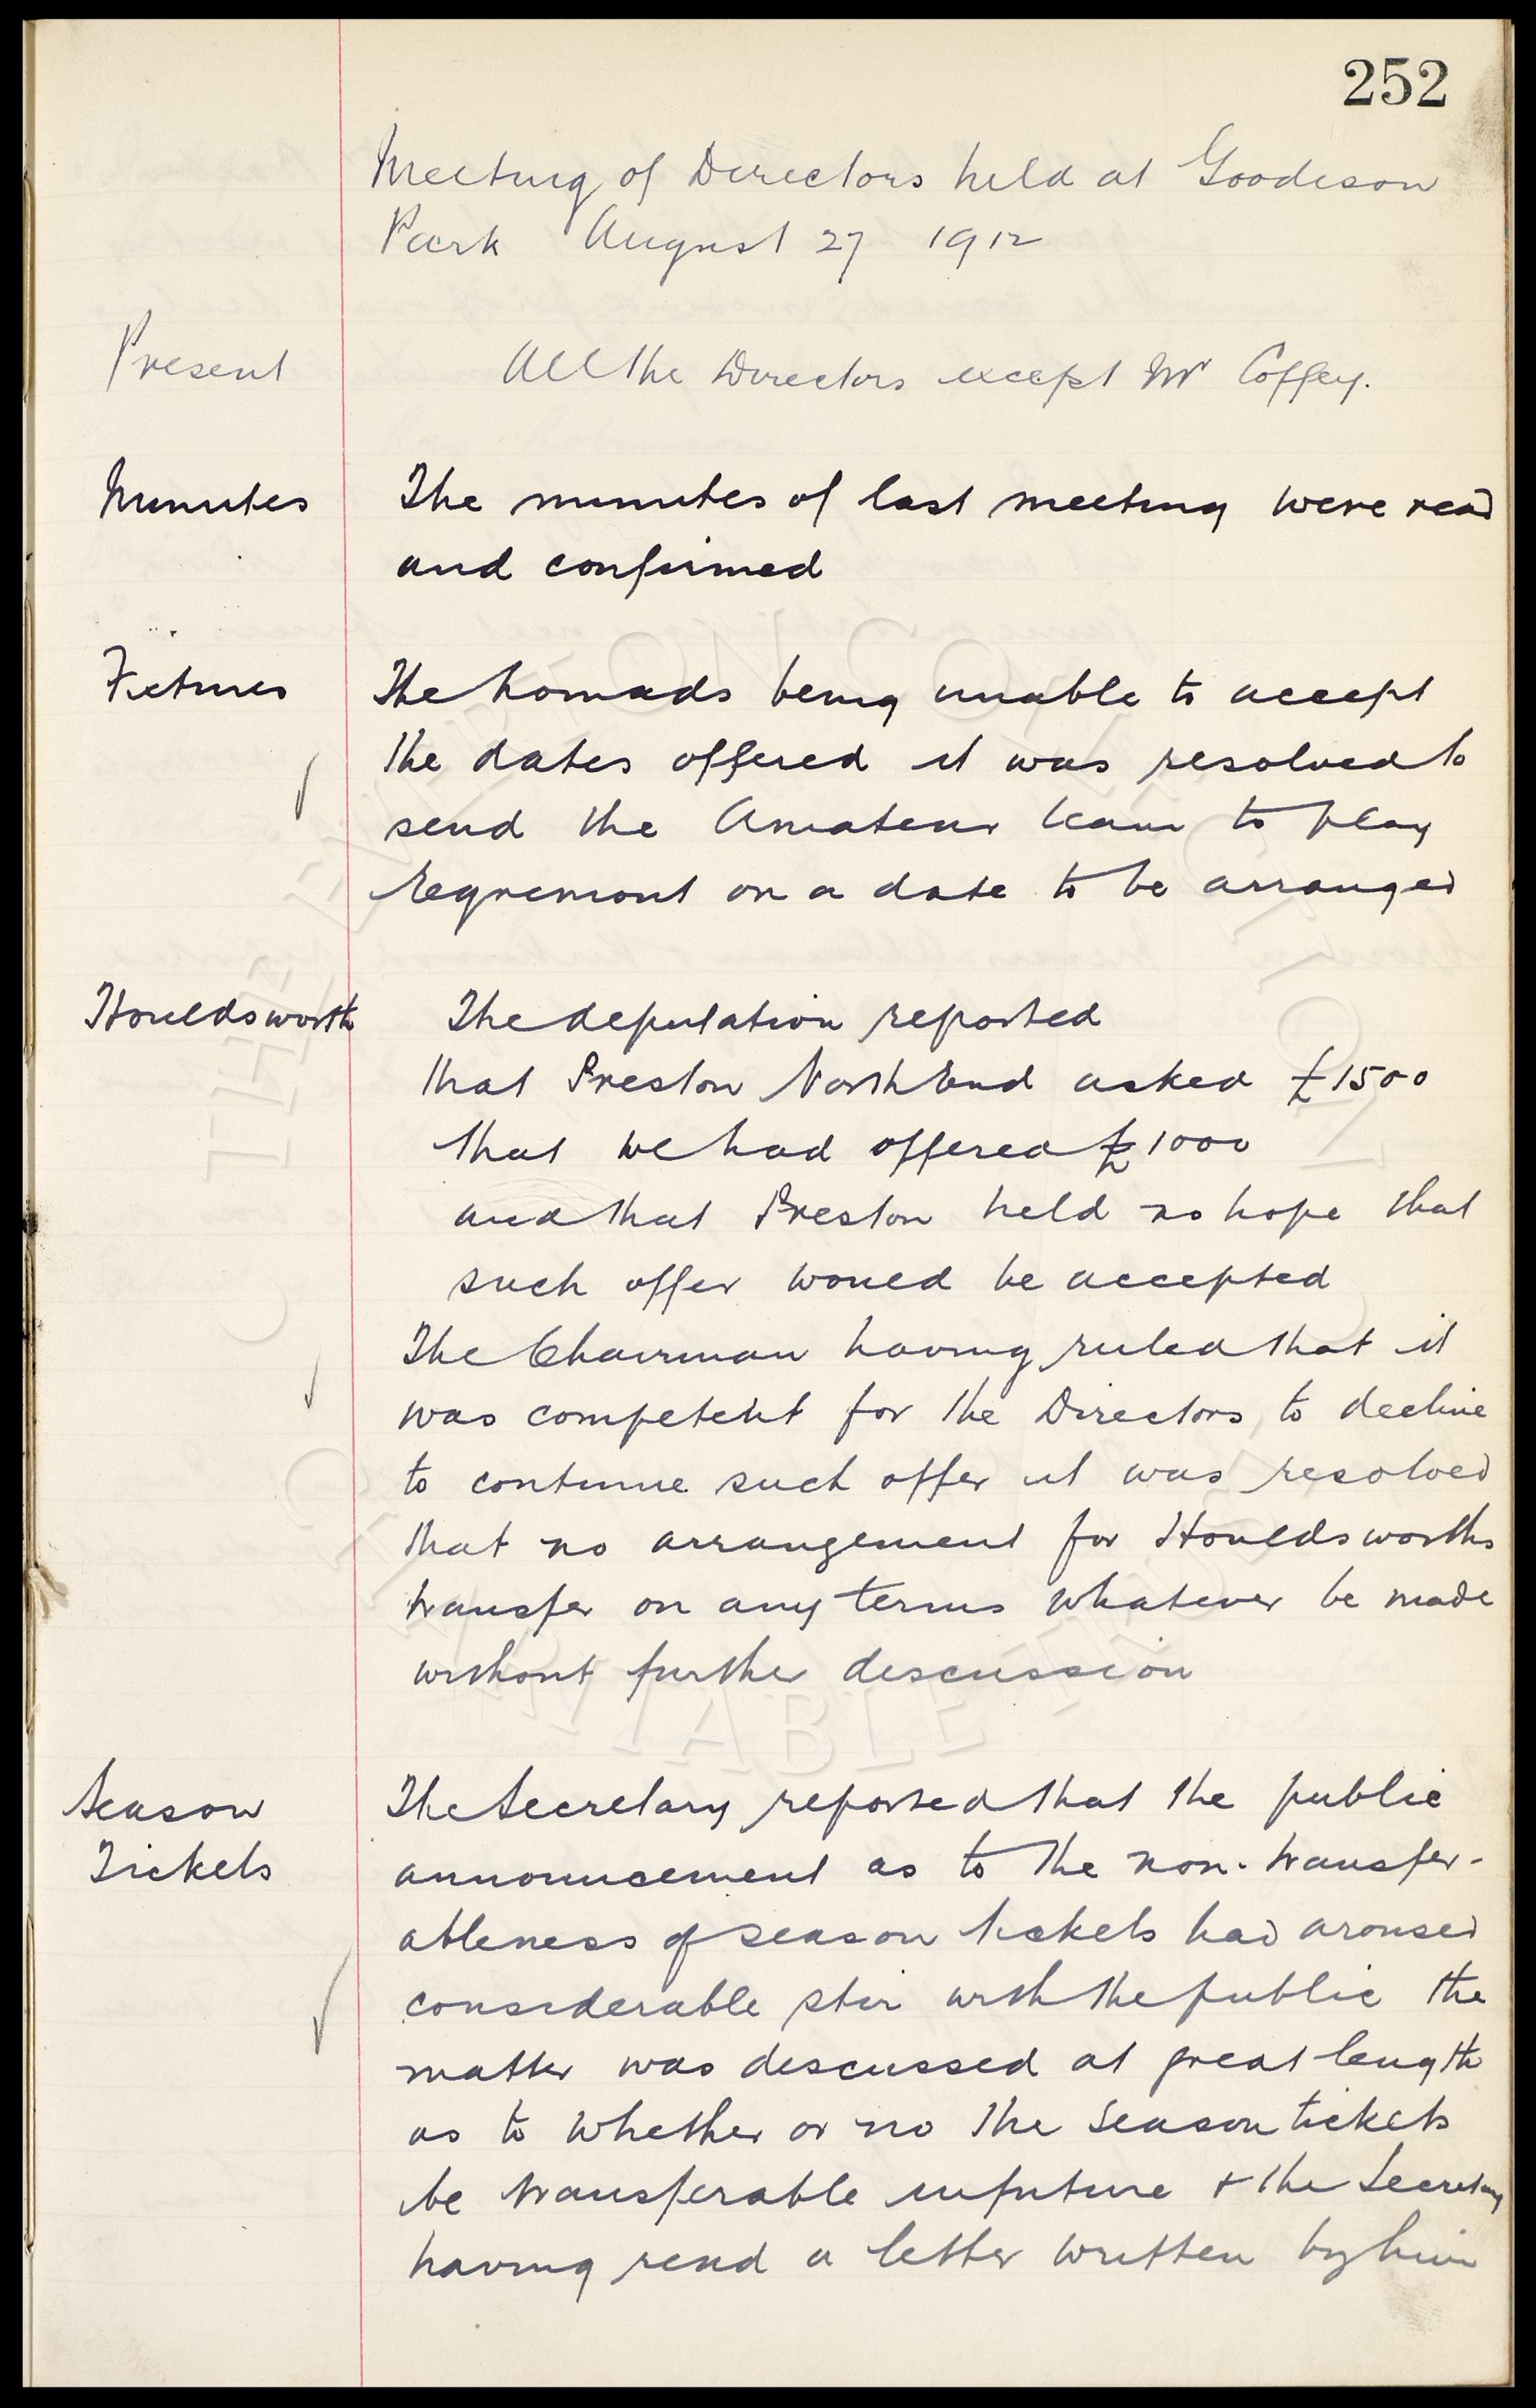 252
Meeting of Directors held at Goodison
Park August 27 1912
Present All the Directors except Mr Coffey.
Minutes The minutes of last meeting were read
and confirmed
Fixtures The Nomads being unable to accept
the dates offered it was resolved to
send the Amateur team to play
Egremont on a date to be arranged
Houldsworth The deputation reported
that Preston North End asked £1500
that we had offered £1000
and that Preston held no hope that
such offer would be accepted
The Chairman having ruled that it
was competent for the Directors to decline
to continue such offer it was resolved
that no arrangement for Houldsworths
transfer on any terms whatever be made
without further discussion
Season The Secretary reported that the public
Tickets announcement as to the non-transfer-
ableness of season tickets had aroused
considerable stir with the public the
matter was discussed at great length
as to whether or no the Season tickets
be transferable in future + the Secretary
having read a letter written by him